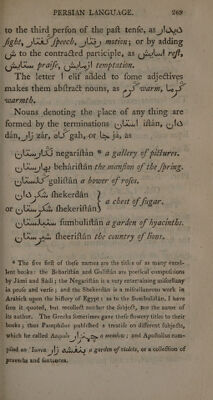 PERSIAN LANGUAGE. 269
to the third person of the past tense, as دیدار
sight, گفتار speech, رفتار motion; or by adding
ش to the contracted participle, as آسایش rest,
ستایش praise, آزمایش temptation.
The letter ا elif added to some adjectives
makes them abstract nouns, as گرم warm, گرما
warmth.
Nouns denoting the place of any thing are
formed by the terminations ستان istân, دان
dân, زار zâr, گاه gah, or جا ja, as
نگارستان negaristân * a gallery of pictures.
بهارستان behâristân the mansion of the spring.
گلستان gulistân a bower of roses.
شکردان shekerdân
or شکرستان shekeristân } a chest of sugar.
سنبلستان sumbulistân a garden of hyacinths.
شیرستان sheeristân the country of lions.
* The five first of these names are the titles of as many excel-
lent books: the Behâristân and Gulistân are poetical compositions
by Jâmi and Sâdi; the Negaristân is a very entertaining miscellany
in prose and verse; and the Shekerdân is a miscellaneous work in
Arabick upon the history of Egypt: as to the Sumbulistân, I have
seen it quoted, but recollect neither the subject, nor the name of
its author. The Greeks sometimes gave these flowery titles to their
books; thus Pamphilus published a treatise on different subjects,
which he called a meadow; and Apostolius com-
piled an a garden of violets, or a collection of
proverbs and sentences.